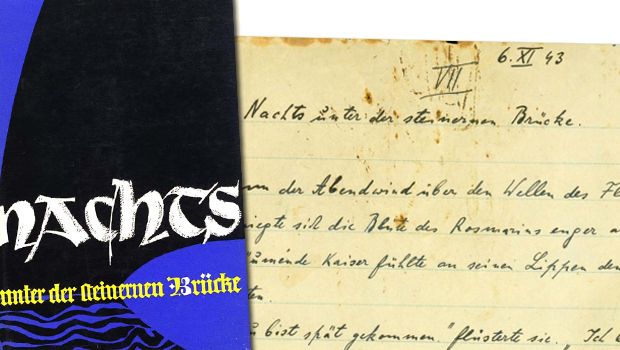 nachts
unter der steinernen Brücke
6. XI 43
VII.
Nachts unter der steinernen Brücke.
der Abendwind über den Wellen des
sich die Blüte des Rosmarins enger
Kaiser fühlte an seinen Lippen den
bist spät gekommen." flüsterte sie. „Ich